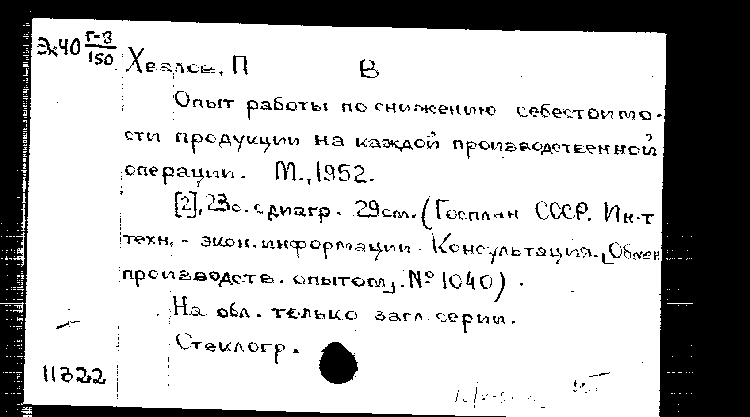 Эк40 Г-3/150
Хвалов, П В
Опыт работы по снижению себестоимо-
сти продукции на каждой производственной
операции. М., 1952.
[2], 23с. с диагр. 29см. (Госплан СССР. Ин-т
техн.-экон. информации. Консультация. [Обмен
производств. опытом]. №1040).
На обл. только загл. серии.
Стеклогр.
11322